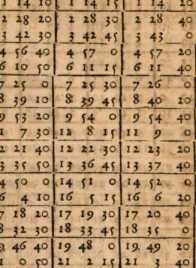 1 14 10 | 1 14 15 | 1 14
2 28 20 | 2 28 30 | 2 28 40
3 42 30 | 3 42 45 | 3 43 0
4 56 40 | 4 57 0 | 4 57 20
6 10 50 | 6 11 15 | 6 11 40
7 25 0 | 7 25 30 | 7 26 0
8 39 10 | 8 39 45 | 8 40 20
9 53 20 | 9 54 0 | 9 54 40
1 7 30 | 12 8 15 | 11 9
2 21 40 | 12 22 30 | 12 23 20
3 35 50 | 13 36 45 | 13 37 40
4 50 | 14 51 0 | 14 52
6 4 10 | 16 5 15 | 16 6 20
7 18 20 | 17 19 30 | 17 20 40
8 32 30 | 18 33 45 | 18 35 0
9 46 40 | 19 48 0 | 19 49 20
1 0 50 | 21 2 15 | 21 40